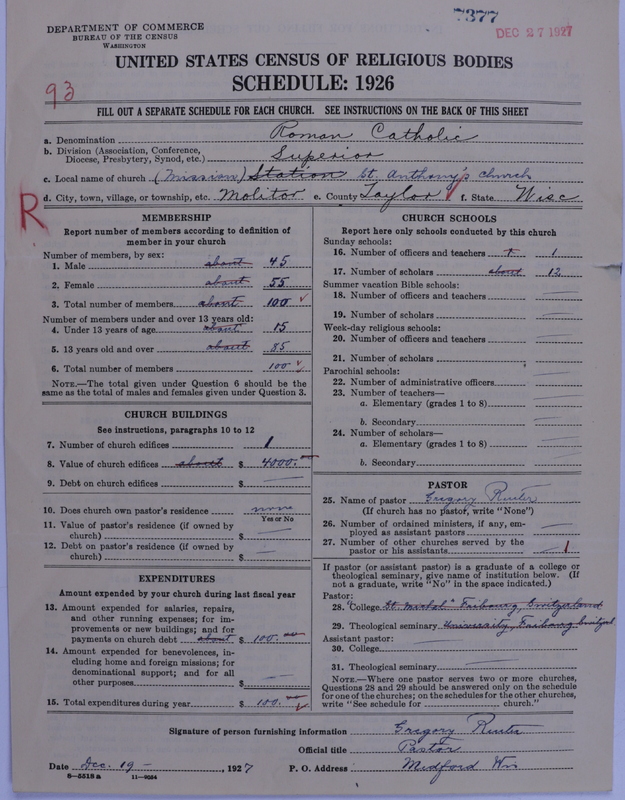 7377
DEC 27 1927
DEPARTMENT OF COMMERCE
BUREAU OF THE CENSUS
WASHINGTON
UNITED STATES CENSUS OF RELIGIOUS BODIES
SCHEDULE: 1926
93
FILL OUT A SEPARATE SCHEDULE FOR EACH CHURCH. SEE INSTRUCTIONS ON THE BACK OF THIS SHEET
a. Denomination Roman Catholic
b. Division (Association, Conference, Diocese, Presbytery, Synod, etc.) Superior
c. Local name of church (Mission) Station St. Anthony's Church
d. City, town, village, or township, etc. Molitor e. County Taylor f. State Wisc
R
MEMBERSHIP
Report number of members according to definition of
member in your church
Number of members, by sex:
1. Male about 45
2. Female about 55
3. Total number of members about 100
Number of members under and over 13 years old:
4. Under 13 years of age about 15
5. 13 years old and over about 85
6. Total number of members 100
NOTE.—The total given under Question 6 should be the
same as the total of males and females given under Question 3.
CHURCH BUILDINGS
See instructions, paragraphs 10 to 12
7. Number of church edifices 1
8. Value of church edifices about $ 4000.
9. Debt on church edifices $
10. Does church own pastor's residence none
Yes or No
11. Value of pastor's residence (if owned by
church) $
12. Debt on pastor's residence (if owned by
church) $
EXPENDITURES
Amount expended by your church during last fiscal year
13. Amount expended for salaries, repairs,
and other running expenses; for im-
provements or new buildings; and for
payments on church debt about $ 100.
14. Amount expended for benevolences, in-
cluding home and foreign missions; for
denominational support; and for all
other purposes $
15. Total expenditures during year $ 100.
CHURCH SCHOOLS
Report here only schools conducted by this church
Sunday schools:
16. Number of officers and teachers 1
17. Number of scholars about 12
Summer vacation Bible schools:
18. Number of officers and teachers
19. Number of scholars
Week-day religious schools:
20. Number of officers and teachers
21. Number of scholars
Parochial schools:
22. Number of administrative officers
23. Number of teachers—
a. Elementary (grades 1 to 8)
b. Secondary
24. Number of scholars—
a. Elementary (grades 1 to 8)
b. Secondary
PASTOR
25. Name of pastor Gregory
(If church has no pastor, write "None")
26. Number of ordained ministers, if any, em-
ployed as assistant pastors
27. Number of other churches served by the
pastor or his assistants 1
If pastor (or assistant pastor) is a graduate of a college or
theological seminary, give name of institution below. (If
not a graduate, write "No" in the space indicated.)
Pastor:
28. College St. Fribourg, Switzerland
29. Theological seminary University, Fribourg
Assistant pastor:
30. College
31. Theological seminary
NOTE.—Where one pastor serves two or more churches,
Questions 28 and 29 should be answered only on the schedule
for one of the churches; on the schedules for the other churches,
write "See schedule for church."
Signature of person furnishing information Gregory
Official title Pastor
Date Dec. 19, 1927 P. O. Address Medford Wis
8—5513 a 11—9034